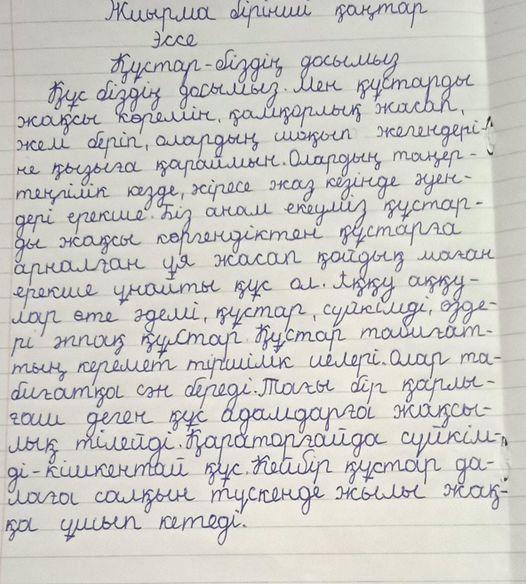 Жиырма бірінші қаңтар
Эссе
Құстар-біздің досымыз
Құс біздің досымыз. Мен құстарды
жақсы көремін, қамқорлық жасап,
жем беріп, олардың шоқып жегендері-
не қызыға қараймын. Олардың таңер-
теңгілік кезде, әсіресе жаз кезінде әуен-
дері ерекше. Біз анам екеуміз құстар-
ды жақсы көргендіктен құстарға
арналған ұя жасап қойдық маған
ерекше ұнайты құс ол. Аққу аққу-
лар өте әдемі, құстар, сүйкімді, өзде-
рі әппақ құстар. Құстар табиғат-
тың керемет тіршілік иелері. Олар та-
биғатқа сән береді. Тағы бір қарлы-
ғаш деген құс адамдарға жақсы-
лық тілейді. Қараторғайда сүйкім-
ді-кішкентай құс. Кейбір құстар да-
лаға салқын түскенде жылы жақ-
қа ұшып кетеді.